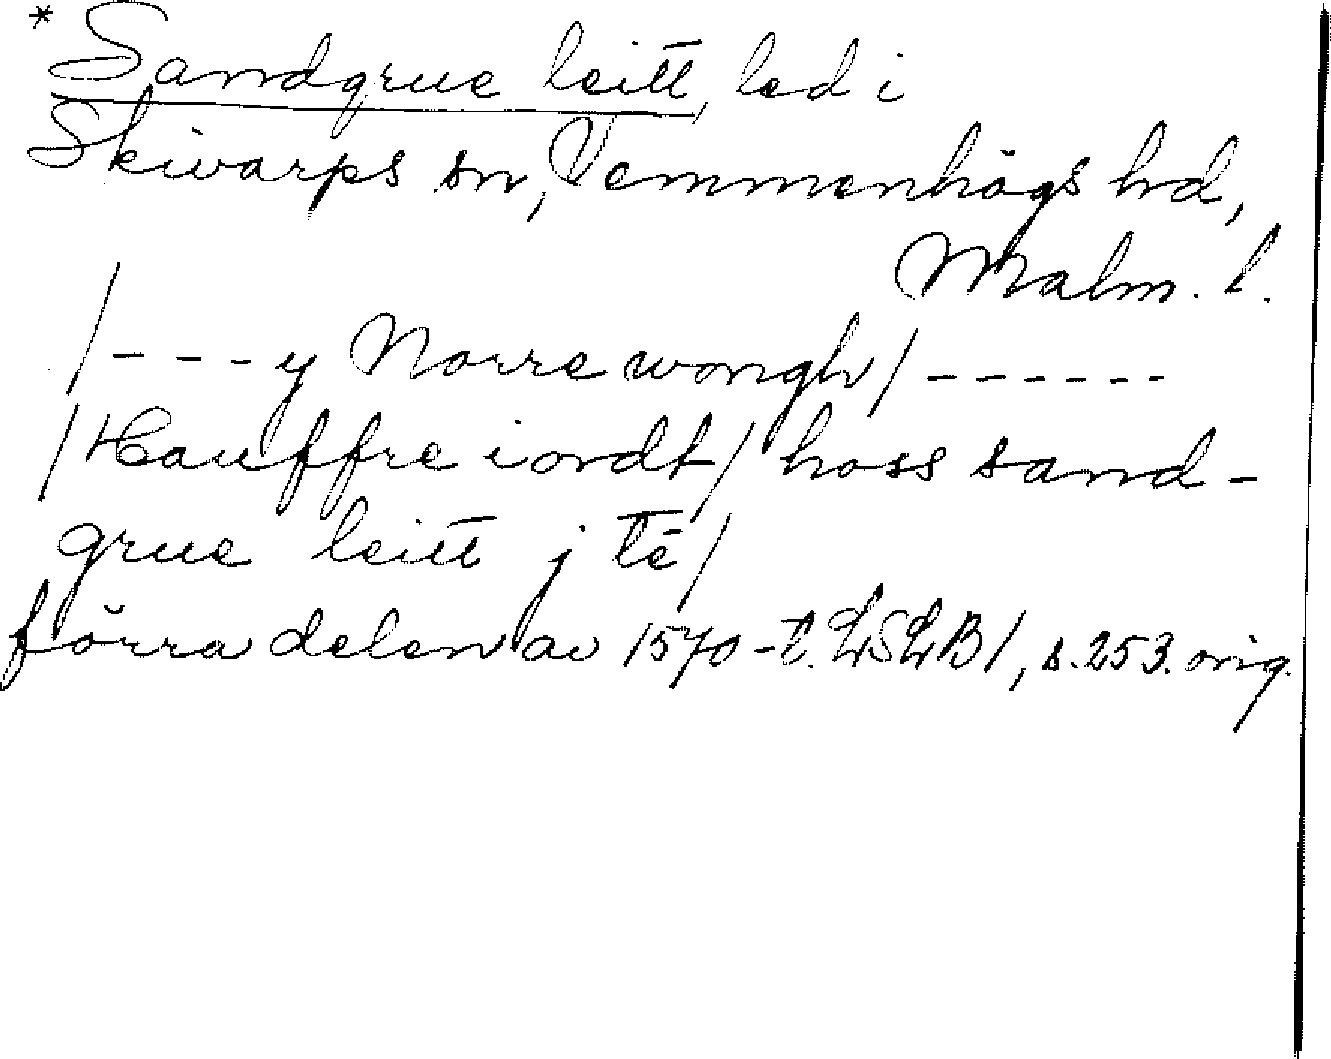 * Sandgrue leitt, led i
Skivarps sn, Vemmenhögs hd,
Malm. l.
/----y Norre wongh/------
/Hauffre iordt/ hoss sand-
grue leitt j tē/
förra delen av 1570-t. LSLB1, s.253. orig.